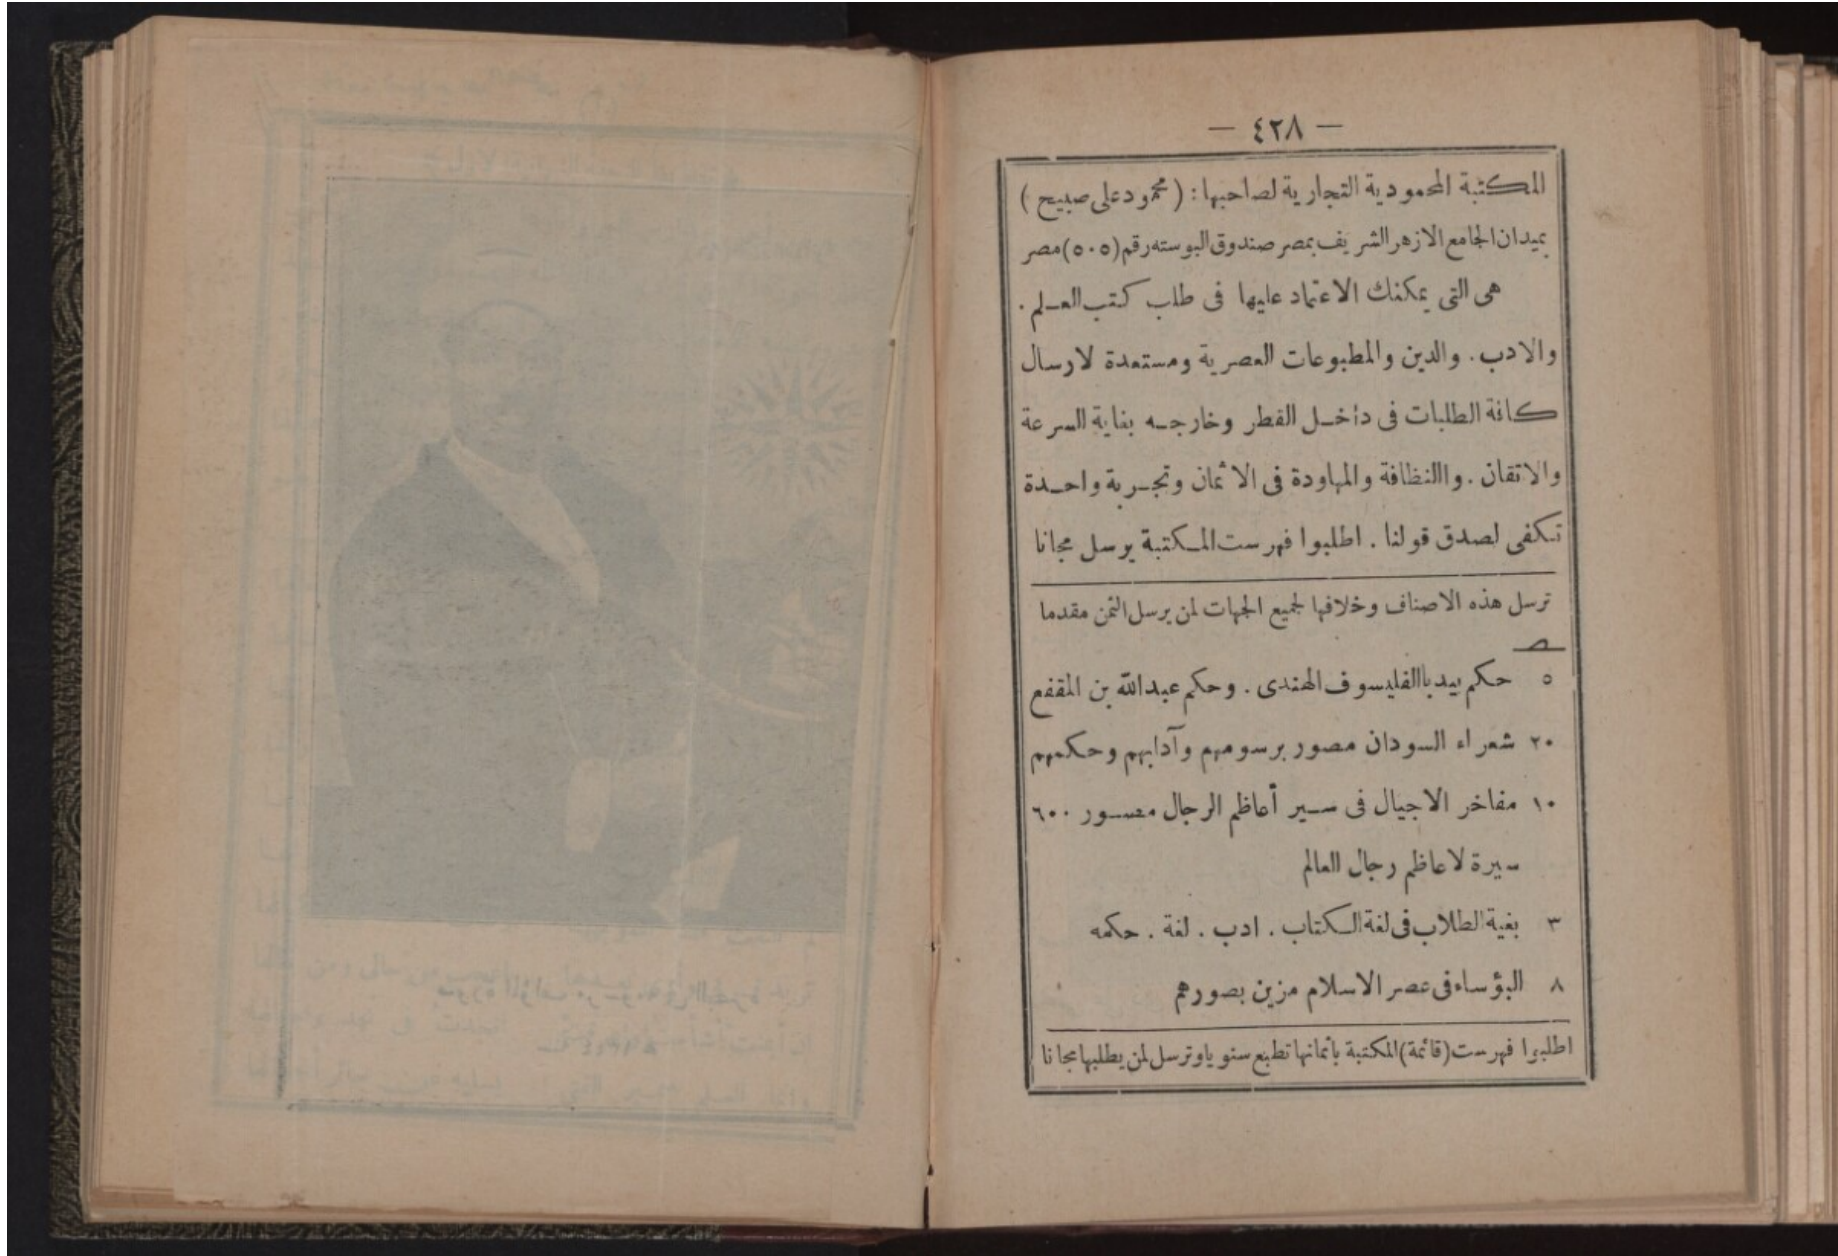 — ٤٢٨ —
المكتبة المحمودية التجارية لصاحبها : ( محمود على صبيح )
بميدان الجامع الازهر الشريف بمصر صندوق البوسته رقم (٥٠٥) مصر
هى التى يمكنك الاعتماد عليها فى طلب كتب العـلم .
والادب . والدين والمطبوعات العصرية ومستعدة لارسال
كافة الطلبات فى داخـل القطر وخارجـه بغاية السرعة
والاتقان . واالنظافة والمهاودة فى الاثمان وتجـربة واحـدة
تكفى لصدق قولنا . اطلبوا فهرست المـكتبة يرسل مجانا
ترسل هذه الاصناف وخلافها لجميع الجهات لمن يرسل الثمن مقدما
٥ حكم بيدبا الفليسوف الهندى . وحكم عبد الله بن المقفع
٢٠ شعراء السودان مصور برسومهم وآدابهم وحكمهم
١٠ مفاخر الاجيال فى سـير أعاظم الرجال مصـور ٦٠٠
سيرة لاعاظم رجال العالم
٣ بغية الطلاب فى لغة الـكتاب . ادب . لغة . حكمه
٨ البؤساء فى عصر الاسلام مزين بصورهم
اطلبوا فهرست (قائمة) المكتبة باثمانها تطبع سنويا وترسل لمن يطلبها مجانا